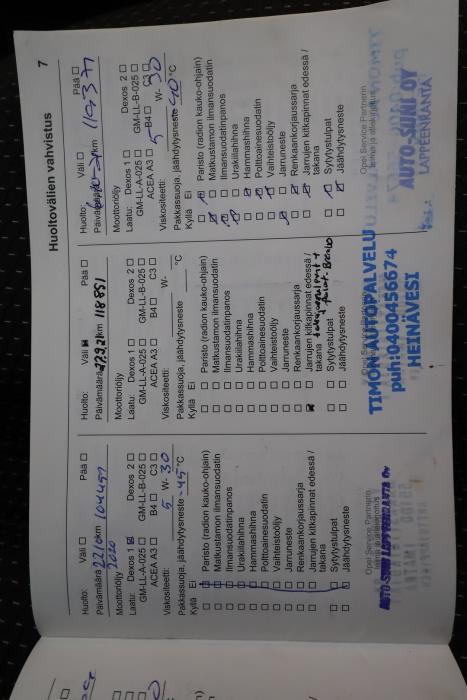 7
Huoltovälien vahvistus
Huolto: Väli ☐ Pää ☐
Päivämäärä 22.10 km 104457
2020
Moottoriöljy
Laatu: Dexos 1 ☒ Dexos 2 ☐
GM-LL-A-025 ☐ GM-LL-B-025 ☐
ACEA A3 ☐ B4 ☐ C3 ☐
Viskositeetti: 5 W- 30
Pakkassuoja, jäähdytysneste -45 °C
Kyllä Ei
☐ ☐ Paristo (radion kauko-ohjain)
☐ ☐ Matkustamon ilmansuodatin
☐ ☐ Ilmansuodatinpanos
☐ ☐ Urakiilahihna
☐ ☐ Hammashihna
☐ ☐ Polttoainesuodatin
☐ ☐ Vaihteistoöljy
☐ ☐ Jarruneste
☐ ☐ Renkaankorjaussarja
☐ ☐ Jarrujen kitkapinnat edessä /
takana
☐ ☐ Sytytystulpat
☐ ☐ Jäähdytysneste
Opel Service Partnerin
leima ja allekirjoitus
AUTO-SUNI LAPPEENRANTA OY
Huolto: Väli ☒ Pää ☐
Päivämäärä km 118851
Moottoriöljy
Laatu: Dexos 1 ☐ Dexos 2 ☐
GM-LL-A-025 ☐ GM-LL-B-025 ☐
ACEA A3 ☐ B4 ☐ C3 ☐
Viskositeetti: W-
Pakkassuoja, jäähdytysneste °C
Kyllä Ei
☐ ☐ Paristo (radion kauko-ohjain)
☐ ☐ Matkustamon ilmansuodatin
☐ ☐ Ilmansuodatinpanos
☐ ☐ Urakiilahihna
☐ ☐ Hammashihna
☐ ☐ Polttoainesuodatin
☐ ☐ Vaihteistoöljy
☐ ☐ Jarruneste
☐ ☐ Renkaankorjaussarja
☒ ☐ Jarrujen kitkapinnat edessä /
takana
☐ ☐ Sytytystulpat
☐ ☐ Jäähdytysneste
Opel Service Partnerin
TIMON AUTOPALVELU
puh:0400456674
HEINÄVESI
Huolto: Väli ☐ Pää ☐
Päivämäärä km 119371
Moottoriöljy
Laatu: Dexos 1 ☐ Dexos 2 ☐
GM-LL-A-025 ☐ GM-LL-B-025 ☐
ACEA A3 ☐ B4 ☐ C3 ☐
Viskositeetti: 5 W- 30
Pakkassuoja, jäähdytysneste -40 °C
Kyllä Ei
Paristo (radion kauko-ohjain)
Matkustamon ilmansuodatin
Ilmansuodatinpanos
Urakiilahihna
Hammashihna
Polttoainesuodatin
Vaihteistoöljy
Jarruneste
Renkaankorjaussarja
Jarrujen kitkapinnat edessä /
takana
Sytytystulpat
Jäähdytysneste
Opel Service Partnerin
leima ja allekirjoitus
AUTO-SUNI OY
LAPPEENRANTA